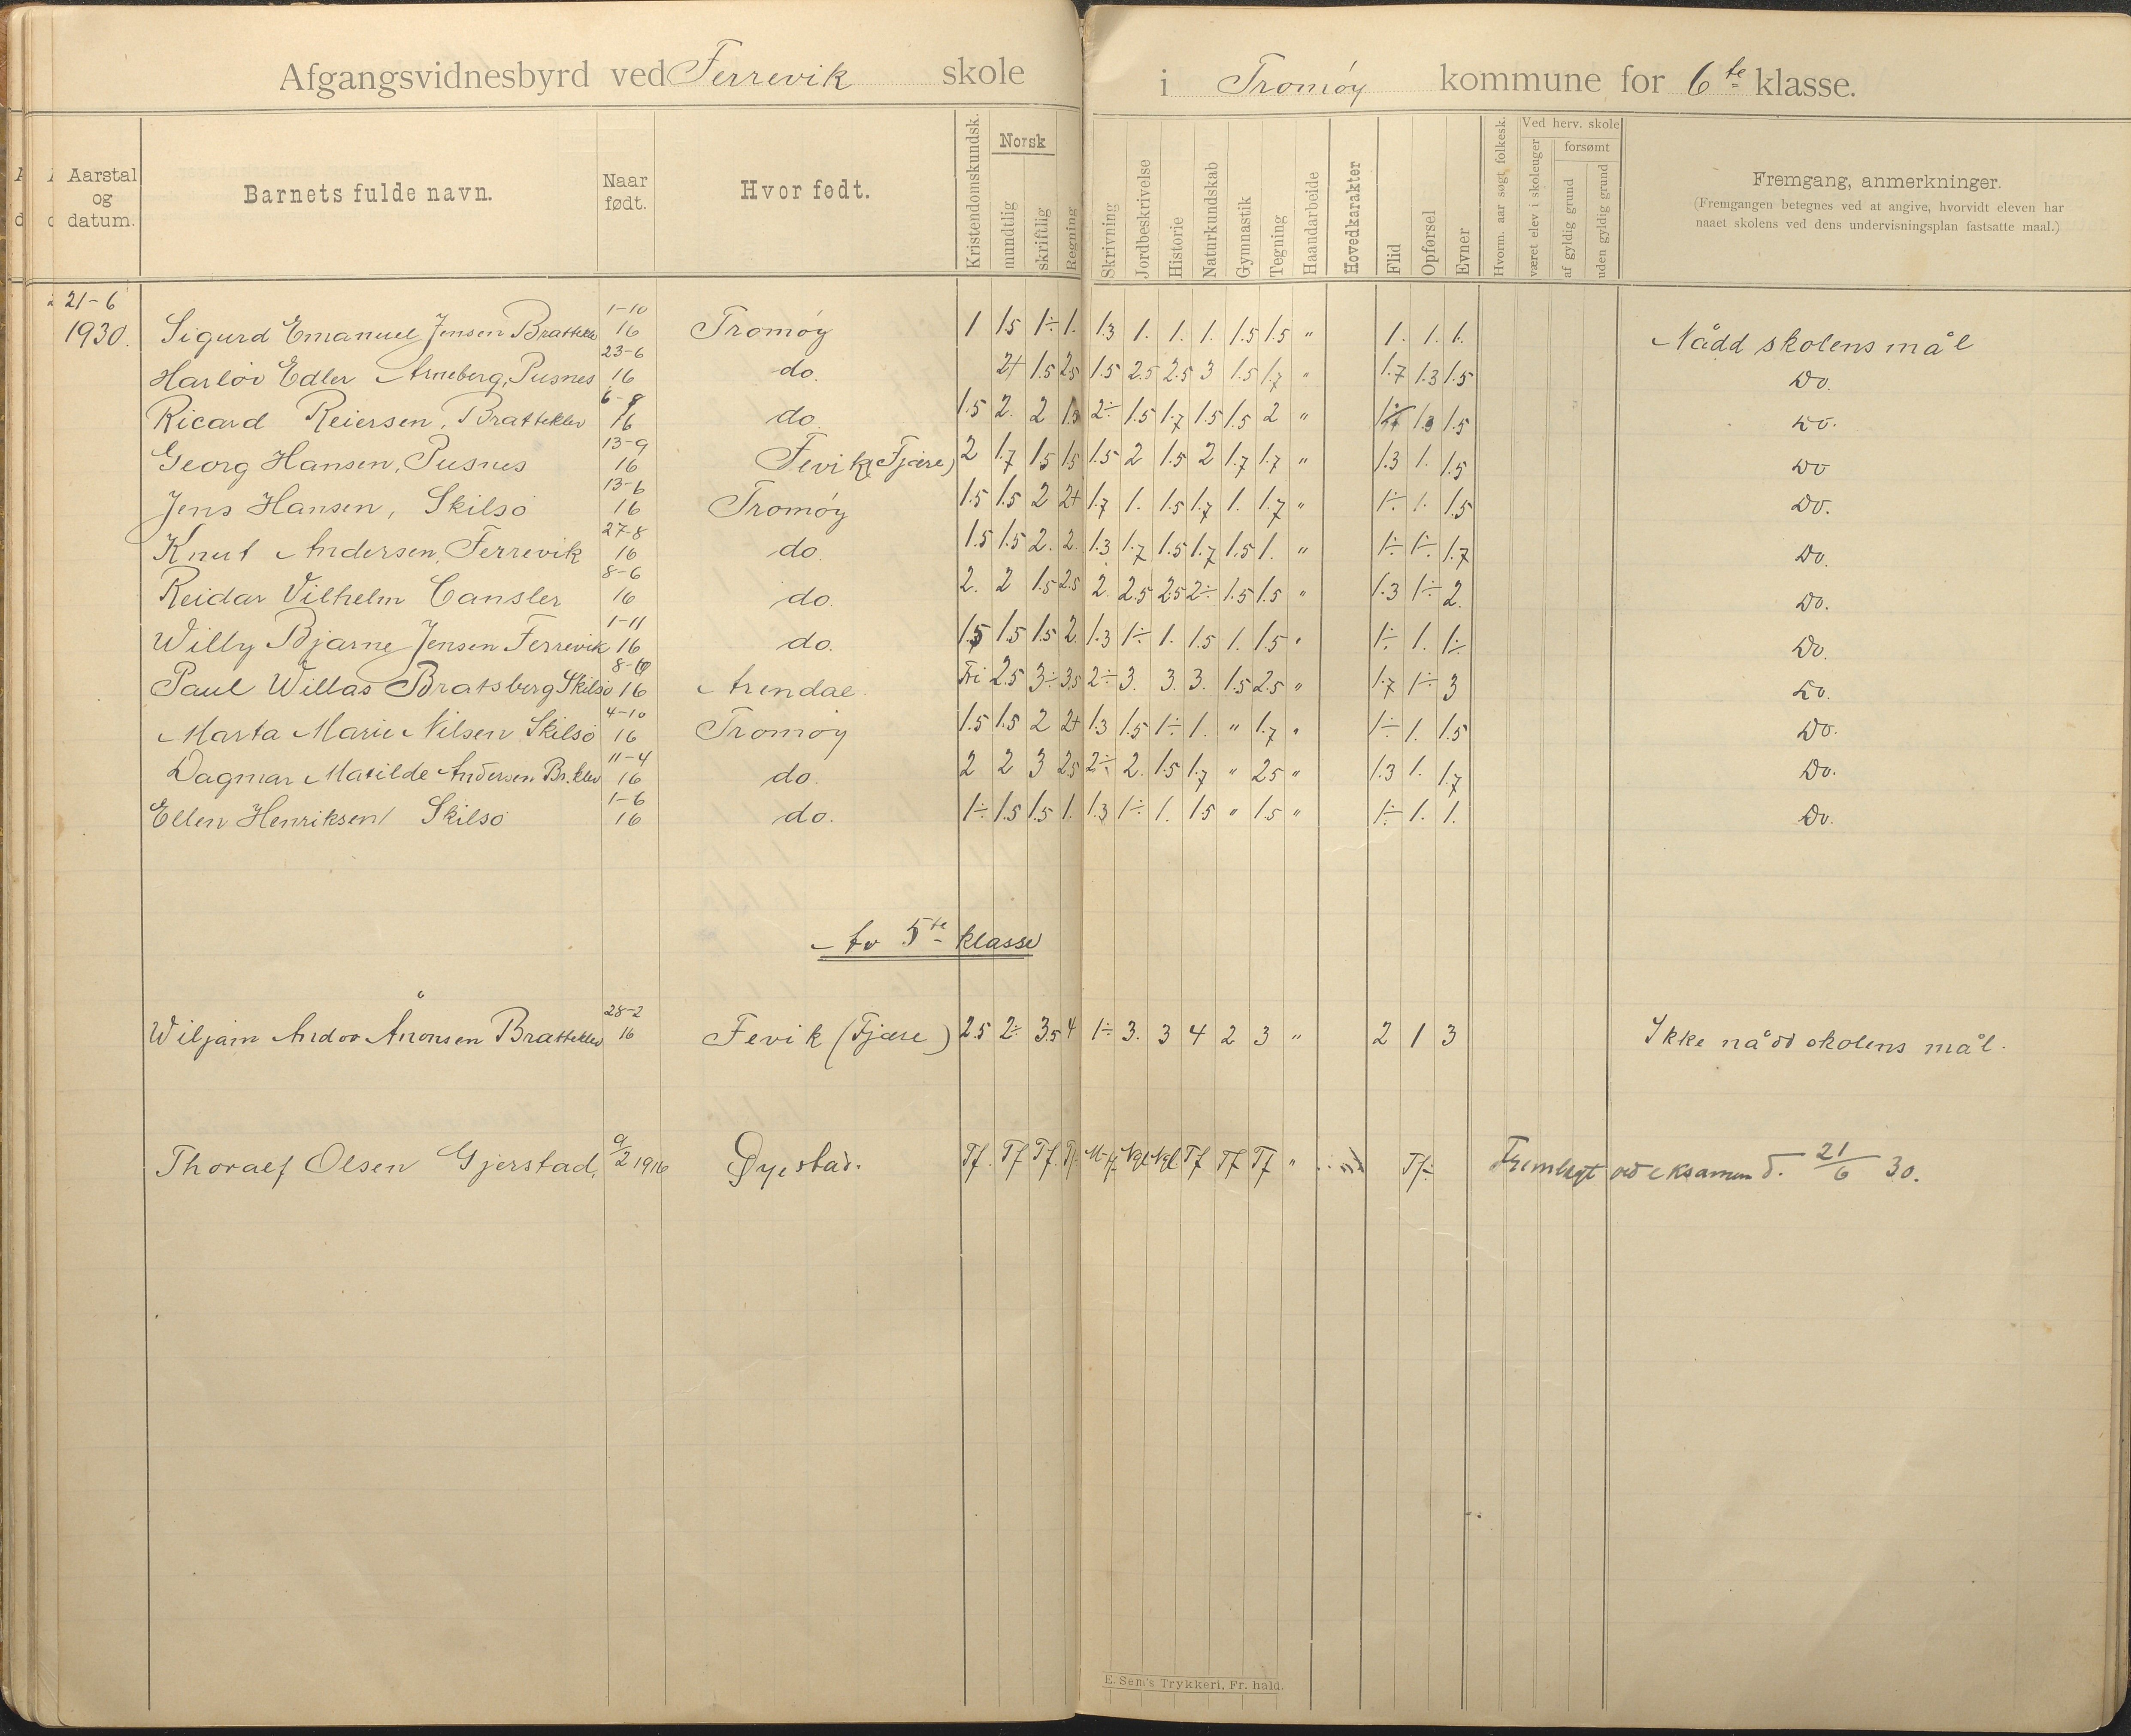 Afgangsvidnesbyrd ved Færrevik skole i Tromøy kommune for 6te klasse.
Aarstal og datum. Barnets fulde navn. Naar født. Hvor født. Kristendomskundsk. Norsk mundtlig skriftlig Regning Skrivning Jordbeskrivelse Historie Naturkundskab Gymnastik Tegning Haandarbeide Hovedkarakter Flid Opførsel Evner Hvorm. aar søgt folkesk. Ved herv. skole været elev i skoleuger forsømt af gyldig grund uden gyldig grund Fremgang, anmerkninger.
(Fremgangen betegnes ved at angive, hvorvidt eleven har
naaet skolens ved dens undervisningsplan fastsatte maal.)
21-6 1930. Sigurd Emanuel Jensen Bratteklev 1-10 16 Tromøy 1 1.5 1÷ 1. 1.3 1. 1. 1. 1.5 1.5 " 1. 1. 1. Nådd skolens mål
Harlov Edler Arneberg, Pusnes 23-6 16 do. 2+ 1.5 2.5 1.5 2.5 2.5 3 1.5 1.7 " 1.7 1.3 1.5 Do.
Ricard Reiersen, Bratteklev 16 do. 1.5 2. 2 1.5 2÷ 1.5 1.7 1.5 1.5 2 " 1.3 1.5 Do.
Georg Hansen, Pusnes 13-9 16 Fevik (Fjære) 2 1.7 1.5 1.5 1.5 2 1.5 2 1.7 1.7 " 1.3 1. 1.5 Do
Jens Hansen, Skilsø 13-6 16 Tromøy 1.5 1.5 2 2+ 1.7 1. 1.5 1.7 1. 1.7 " 1÷ 1. 1.5 Do.
Knut Andersen, Færrevik 27-8 16 do. 1.5 1.5 2. 2. 1.3 1.7 1.5 1.7 1.5 1. " 1÷ 1÷ 1.7 Do.
Reidar Vilhelm Cansler 8-6 16 do. 2. 2 1.5 2.5 2. 2.5 2.5 2÷ 1.5 1.5 " 1.3 1÷ 2. Do.
Willy Bjarne Jensen Færrevik 1-11 16 do. 1.5 1.5 1.5 2. 1.3 1÷ 1. 1.5 1. 1.5 " 1÷ 1. 1÷ Do.
Paul Willas Bratsberg Skilsø 16 Arendal. Fri 2.5 3÷ 3.5 2÷ 3. 3. 3. 1.5 2.5 " 1.7 1÷ 3 Do.
Marta Marie Nilsen Skilsø 4-10 16 Tromøy 1.5 1.5 2 2+ 1.3 1.5 1÷ 1. " 1.7 " 1÷ 1. 1.5 Do.
Dagmar Matilde Andersen Br.klev 11-4 16 do. 2 2 3 2.5 2÷ 2. 1.5 1.7 " 2.5 " 1.3 1. 1.7 Do.
Ellen Henriksen Skilsø 1-6 16 do. 1÷ 1.5 1.5 1. 1.3 1÷ 1. 1.5 " 1.5 " 1÷ 1. 1. Do.
Av 5te klasse
Wiljam Andor Ånonsen Bratteklev 28-2 16 Fevik (Fjære) 2.5 2÷ 3.5 4 1÷ 3. 3 4 2 3 " 2 1 3 Ikke nådd skolens mål.
Thoralf Olsen Gjerstad, 9/2 1916 Øyestad. Tf. Tf Tf. Tf. Mtf Ngl Ngl Tf Tf Tf " Tf÷ Fremlagt ved eksamen d. 21/6 30.
E. Sem's Trykkeri, Fr. hald.